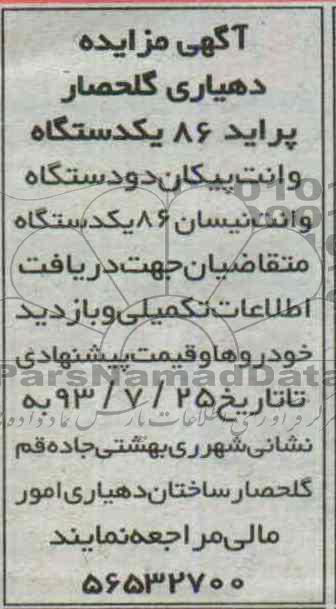 آگهی مزایده
دهیاری گلحصار
پراید ۸۶ یکدستگاه
وانت پیکان دودستگاه
وانت نیسان ۸۶ یکدستگاه
متقاضیان جهت دریافت
اطلاعات تکمیلی و بازدید
خودروها و قیمت پیشنهادی
ParsNamadData
تا تاریخ ۲۵ / ۷ / ۹۳ به
نشانی شهرری بهشتی جاده قم
گلحصار ساختان دهیاری امور
مالی مراجعه نمایند
۵۶۵۳۲۷۰۰